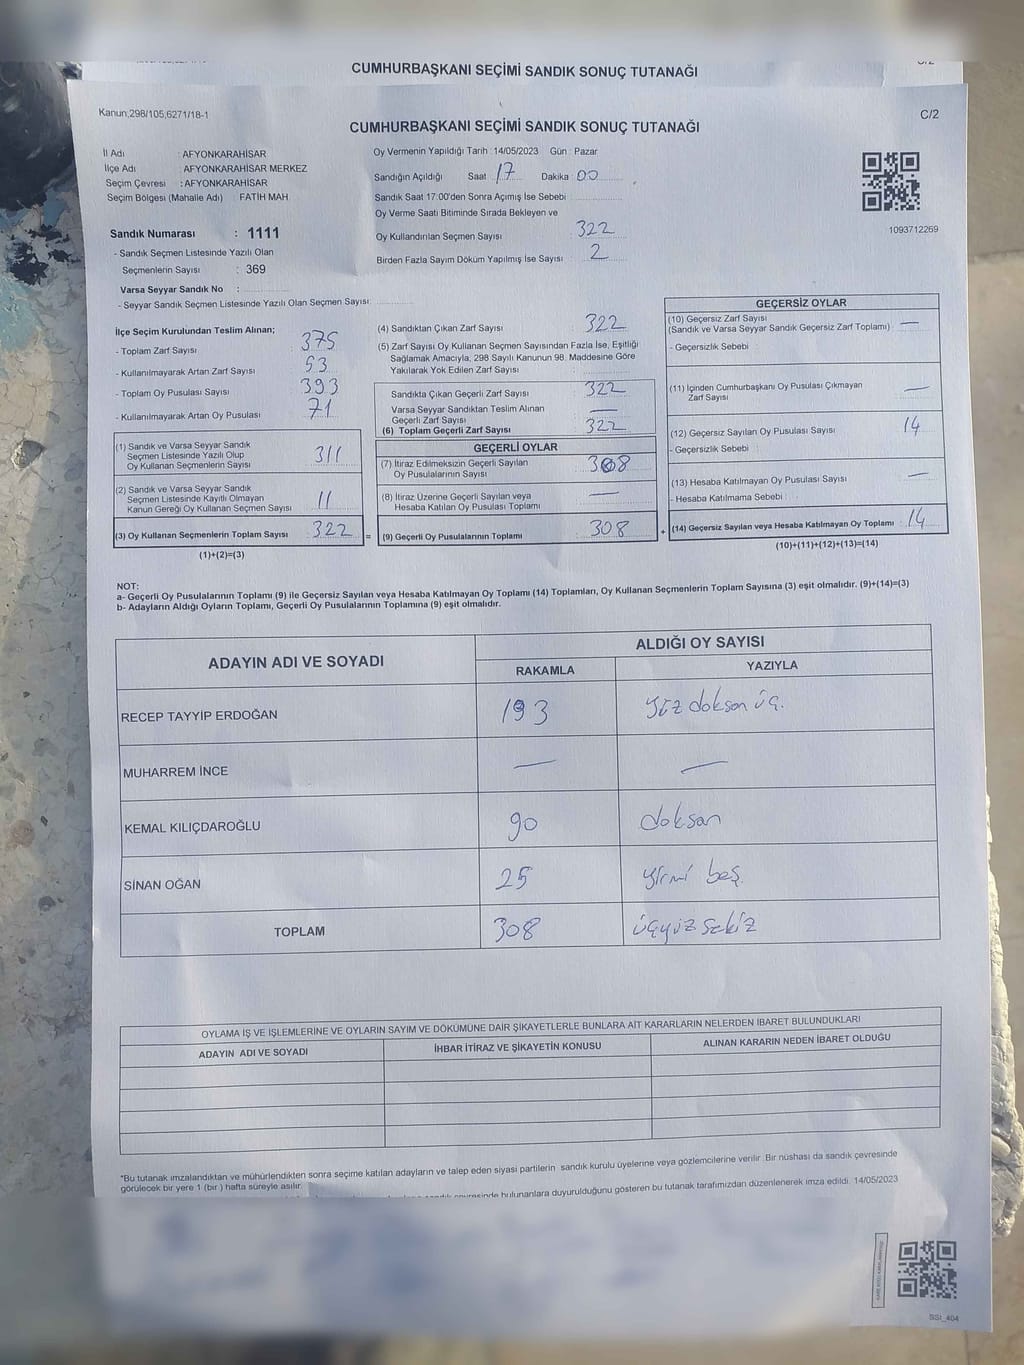 CUMHURBAŞKANI SEÇİMİ SANDIK SONUÇ TUTANAĞI
Kanun;298/105;6271/18-1
C/2
CUMHURBAŞKANI SEÇİMİ SANDIK SONUÇ TUTANAĞI
İl Adı : AFYONKARAHİSAR
İlçe Adı : AFYONKARAHİSAR MERKEZ
Seçim Çevresi : AFYONKARAHİSAR
Seçim Bölgesi (Mahalle Adı) FATİH MAH.
Sandık Numarası : 1111
- Sandık Seçmen Listesinde Yazılı Olan
Seçmenlerin Sayısı : 369
Varsa Seyyar Sandık No :
- Seyyar Sandık Seçmen Listesinde Yazılı Olan Seçmen Sayısı:
Oy Vermenin Yapıldığı Tarih : 14/05/2023 Gün : Pazar
Sandığın Açıldığı Saat : 17 Dakika : 00
Sandık Saat 17:00'den Sonra Açılmış İse Sebebi :
Oy Verme Saati Bitiminde Sırada Bekleyen ve
Oy Kullandırılan Seçmen Sayısı 322
Birden Fazla Sayım Döküm Yapılmış İse Sayısı : 2
1093712269
İlçe Seçim Kurulundan Teslim Alınan;
- Toplam Zarf Sayısı : 375
- Kullanılmayarak Artan Zarf Sayısı : 53
- Toplam Oy Pusulası Sayısı : 393
- Kullanılmayarak Artan Oy Pusulası : 71
(1) Sandık ve Varsa Seyyar Sandık
Seçmen Listesinde Yazılı Olup
Oy Kullanan Seçmenlerin Sayısı : 311
(2) Sandık ve Varsa Seyyar Sandık
Seçmen Listesinde Kayıtlı Olmayan
Kanun Gereği Oy Kullanan Seçmen Sayısı : 11
(3) Oy Kullanan Seçmenlerin Toplam Sayısı : 322
(1)+(2)=(3)
(4) Sandıktan Çıkan Zarf Sayısı : 322
(5) Zarf Sayısı Oy Kullanan Seçmen Sayısından Fazla İse, Eşitliği
Sağlamak Amacıyla, 298 Sayılı Kanunun 98. Maddesine Göre
Yakılarak Yok Edilen Zarf Sayısı :
Sandıkta Çıkan Geçerli Zarf Sayısı : 322
Varsa Seyyar Sandıktan Teslim Alınan
Geçerli Zarf Sayısı : —
(6) Toplam Geçerli Zarf Sayısı : 322
GEÇERLİ OYLAR
(7) İtiraz Edilmeksizin Geçerli Sayılan
Oy Pusulalarının Sayısı : 308
(8) İtiraz Üzerine Geçerli Sayılan veya
Hesaba Katılan Oy Pusulası Toplamı : —
= (9) Geçerli Oy Pusulalarının Toplamı : 308
GEÇERSİZ OYLAR
(10) Geçersiz Zarf Sayısı
(Sandık ve Varsa Seyyar Sandık Geçersiz Zarf Toplamı) : —
- Geçersizlik Sebebi :
(11) İçinden Cumhurbaşkanı Oy Pusulası Çıkmayan
Zarf Sayısı : —
(12) Geçersiz Sayılan Oy Pusulası Sayısı : 14
- Geçersizlik Sebebi :
(13) Hesaba Katılmayan Oy Pusulası Sayısı : —
- Hesaba Katılmama Sebebi :
+ (14) Geçersiz Sayılan veya Hesaba Katılmayan Oy Toplamı : 14
(10)+(11)+(12)+(13)=(14)
NOT:
a- Geçerli Oy Pusulalarının Toplamı (9) ile Geçersiz Sayılan veya Hesaba Katılmayan Oy Toplamı (14) Toplamları, Oy Kullanan Seçmenlerin Toplam Sayısına (3) eşit olmalıdır. (9)+(14)=(3)
b- Adayların Aldığı Oyların Toplamı, Geçerli Oy Pusulalarının Toplamına (9) eşit olmalıdır.
ADAYIN ADI VE SOYADI
ALDIĞI OY SAYISI
RAKAMLA YAZIYLA
RECEP TAYYİP ERDOĞAN 193 yüz doksan üç.
MUHARREM İNCE — —
KEMAL KILIÇDAROĞLU 90 doksan
SİNAN OĞAN 25 yirmi beş
TOPLAM 308 üçyüz sekiz
OYLAMA İŞ VE İŞLEMLERİNE VE OYLARIN SAYIM VE DÖKÜMÜNE DAİR ŞİKAYETLERLE BUNLARA AİT KARARLARIN NELERDEN İBARET BULUNDUKLARI
ADAYIN ADI VE SOYADI İHBAR İTİRAZ VE ŞİKAYETİN KONUSU ALINAN KARARIN NEDEN İBARET OLDUĞU
*Bu tutanak imzalandıktan ve mühürlendikten sonra seçime katılan adayların ve talep eden siyasi partilerin sandık kurulu üyelerine veya gözlemcilerine verilir. Bir nüshası da sandık çevresinde
görülecek bir yere 1 (bir ) hafta süreyle asılır.
bulunanlara duyurulduğunu gösteren bu tutanak tarafımızdan düzenlenerek imza edildi. 14/05/2023
SSt_404